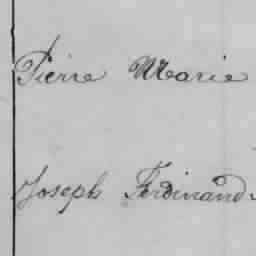 Pierre Marie
Joseph Ferdinand.